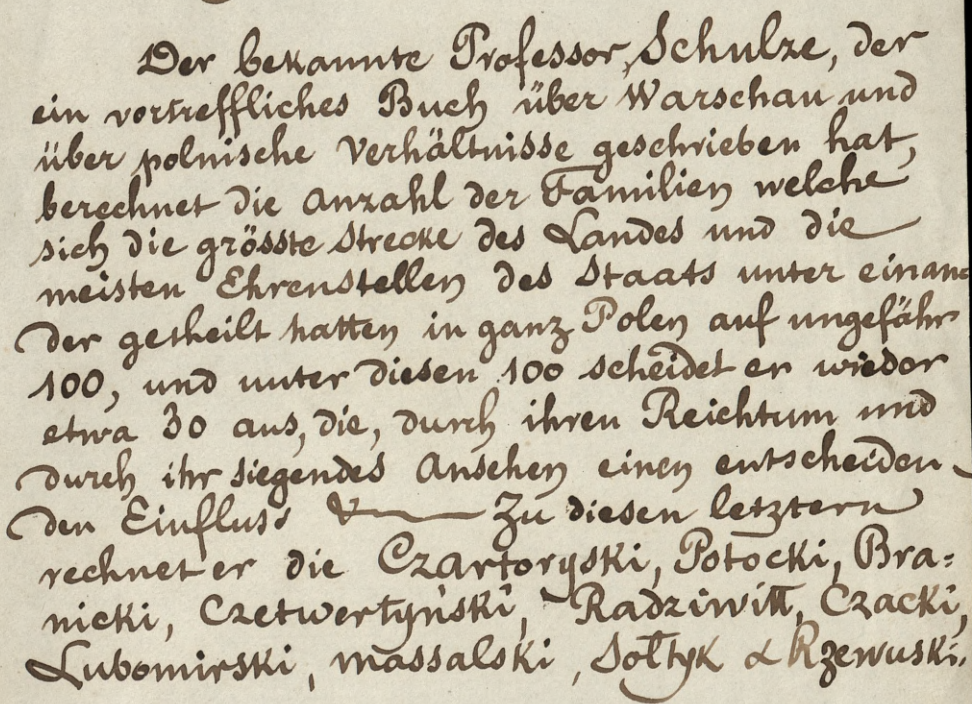 Der bekannte Professor, Schulze, der
ein vortreffliches Buch über Warschau und
über polnische Verhältnisse geschrieben hat,
berechnet die Anzahl der Familien welche
sich die grösste Strecke des Landes und die
meisten Ehrenstellen des Staats unter einan=
der getheilt hatten in ganz Polen auf ungefähr
100, und unter diesen 100 scheidet er wieder
etwa 30 aus, die, durch ihren Reichtum und
durch ihr siegendes Ansehen einen entscheiden-
den Einfluss — Zu diesen letztern
rechnet er die Czartoryski, Potocki, Bra=
nicki, Czetwertyński, Radziwiłł, Czacki,
Lubomirski, Massalski, Sołtyk & Rzewuski.